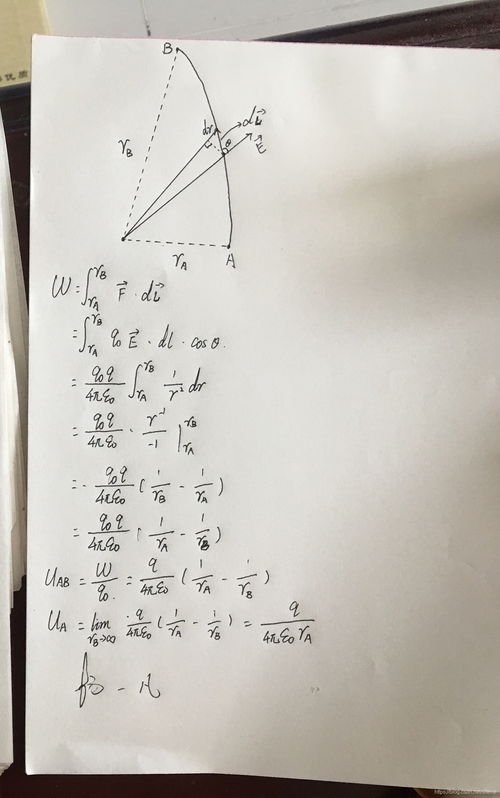 B
dr
dL⃗
θ
E⃗
r_B
r_A
A
W = ∫_{r_A}^{r_B} F⃗ · dL⃗
= ∫_{r_A}^{r_B} q₀ E⃗ · dl · cosθ.
= \frac{q₀q}{4πε₀} ∫_{r_A}^{r_B} \frac{1}{r²} dr
= \frac{q₀q}{4πε₀} · \frac{r^{-1}}{-1} |_{r_A}^{r_B}
= - \frac{q₀q}{4πε₀} ( \frac{1}{r_B} - \frac{1}{r_A} )
= \frac{q₀q}{4πε₀} ( \frac{1}{r_A} - \frac{1}{r_B} )
U_{AB} = \frac{W}{q₀.} = \frac{q}{4πε₀} ( \frac{1}{r_A} - \frac{1}{r_B} )
U_A = \lim_{r_B→∞} \frac{q}{4πε₀} ( \frac{1}{r_A} - \frac{1}{r_B} ) = \frac{q}{4πε₀ r_A}